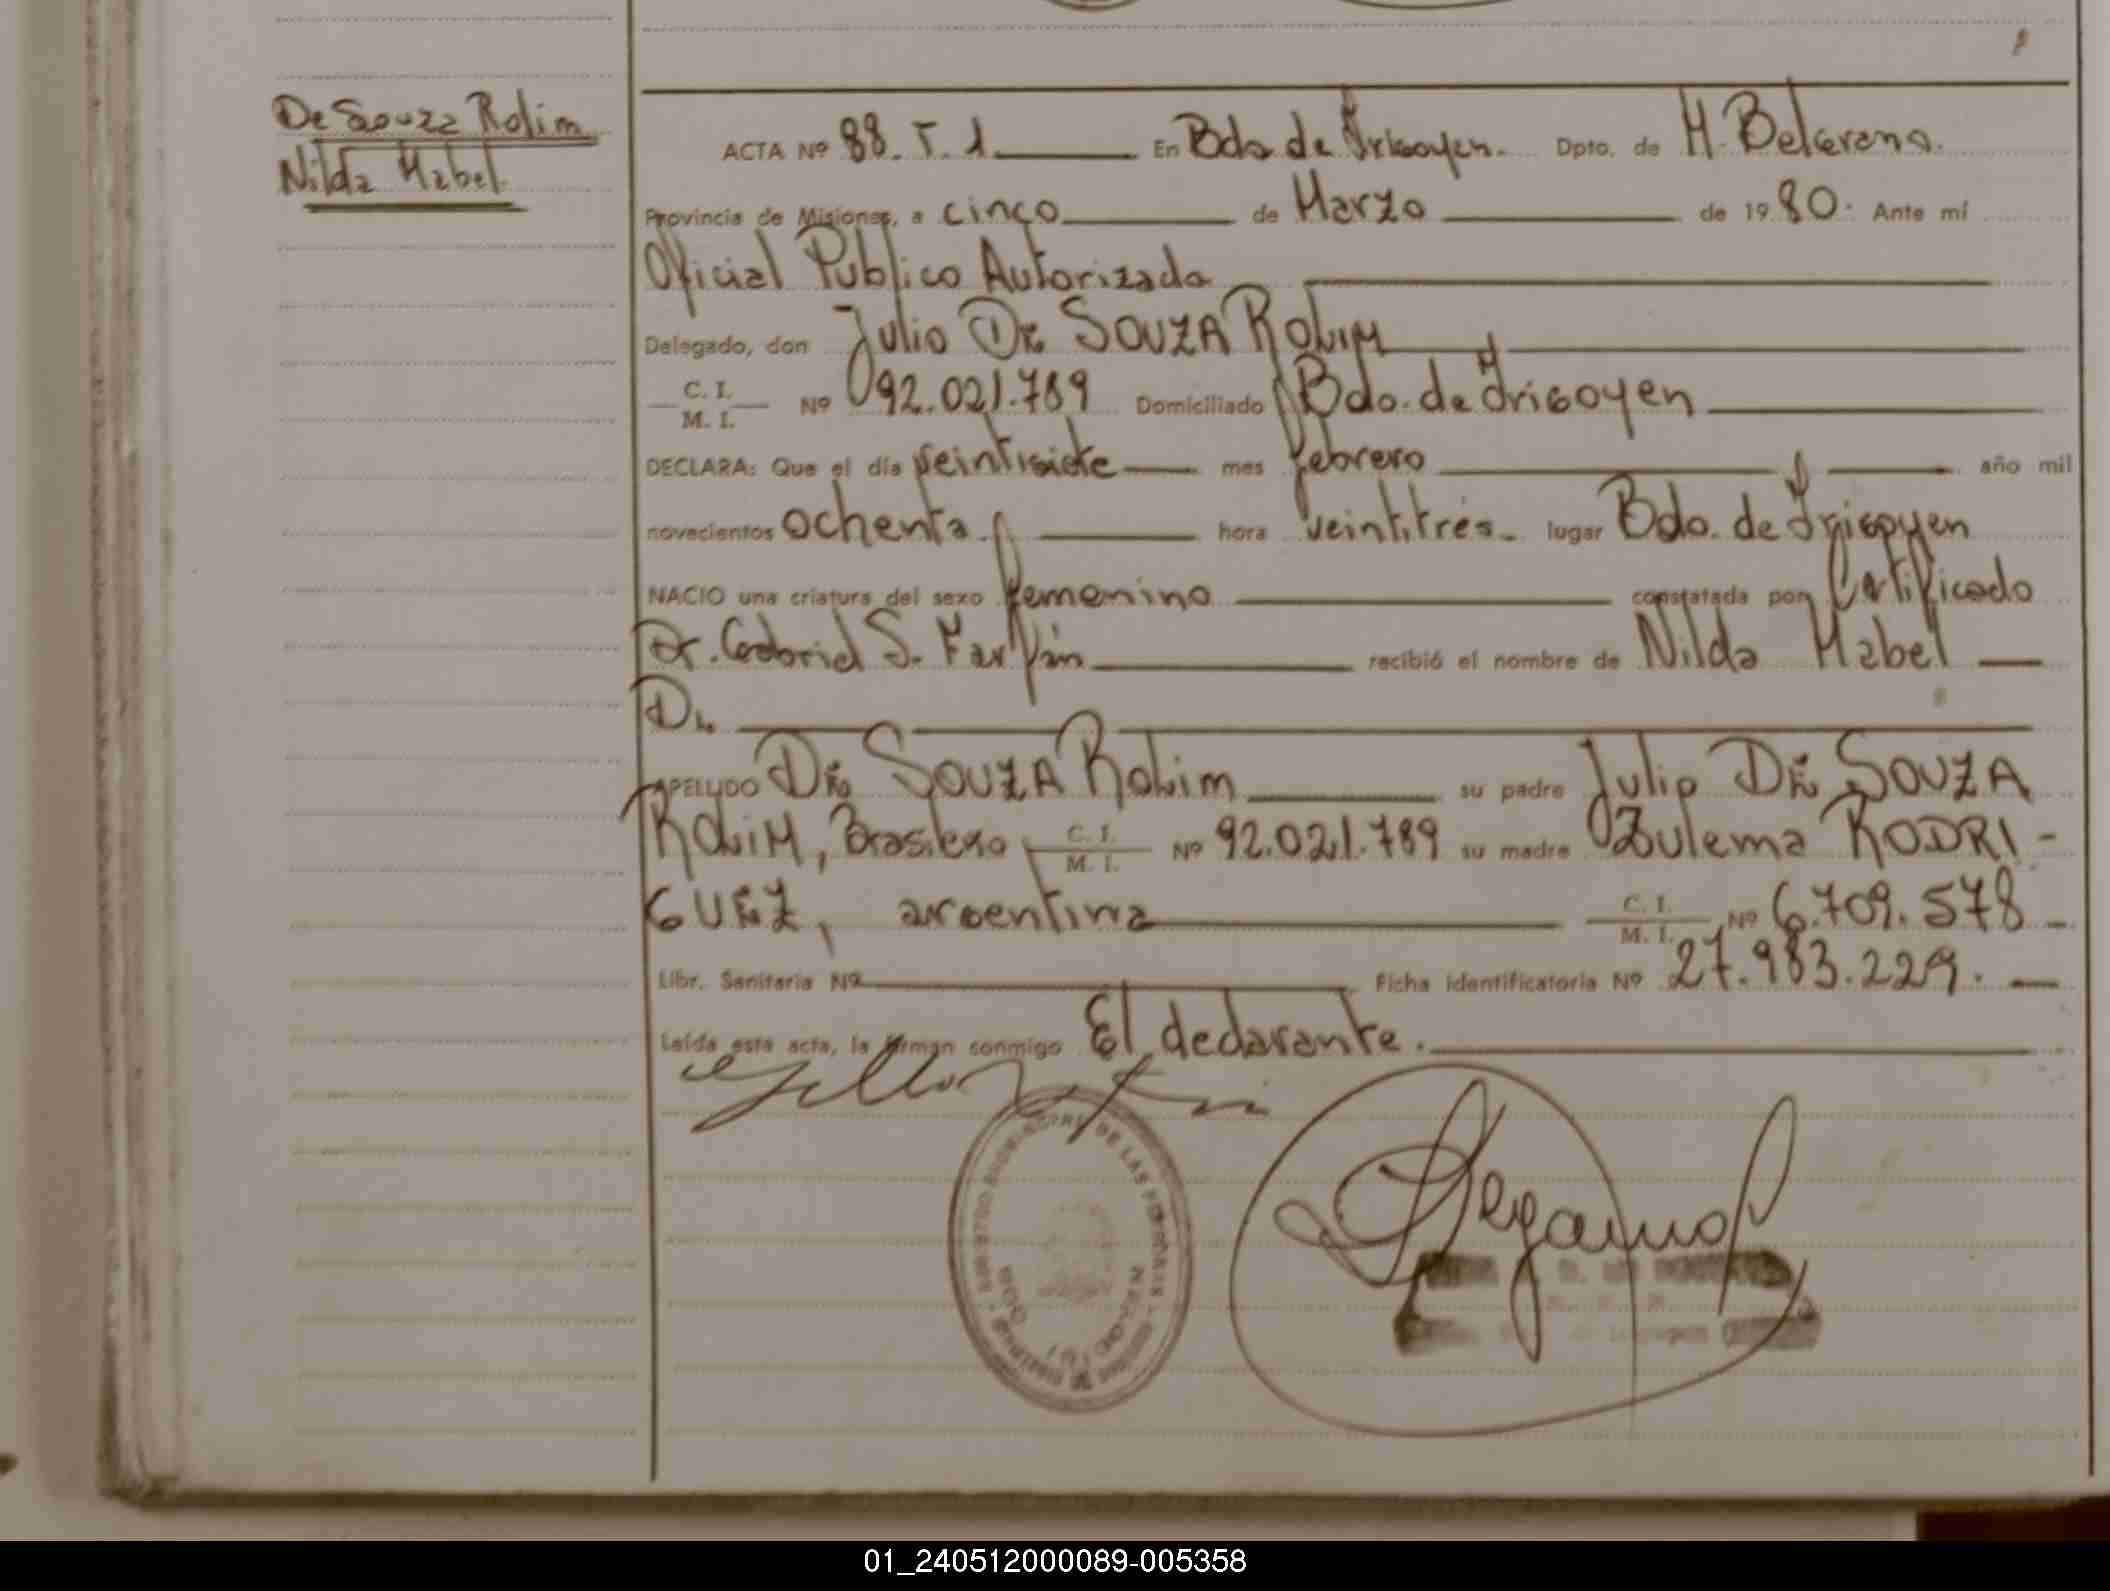 De Souza Rolim
Nilda Mabel.
ACTA Nº 88. T. 1. En Bdo de Irigoyen. Dpto. de M. Belgrano.
Provincia de Misiones, a cinco de Marzo de 1980. Ante mí
Oficial Público Autorizado
Delegado, don Julio DE SOUZA ROLIM
C. I.
M. I. Nº 92.021.789 Domiciliado Bdo. de Irigoyen
DECLARA: Que el día veintisiete mes febrero año mil
novecientos ochenta. hora veintitrés. lugar Bdo. de Irigoyen
NACIO una criatura del sexo femenino constatada por Certificado
Dr. Gabriel S. recibió el nombre de Nilda Mabel
APELLIDO DE SOUZA ROLIM su padre Julio DE SOUZA
ROLIM, Brasilero C. I. M. I. Nº 92.021.789 su madre Zulema RODRI-
GUEZ, argentina C. I. M. I. Nº 6.709.578
Libr. Sanitaria Nº Ficha identificatoria Nº 27.983.229.
Leída esta acta, la firman conmigo El declarante.
PROVINCIAL DE LAS PERSONAS
01_240512000089-005358